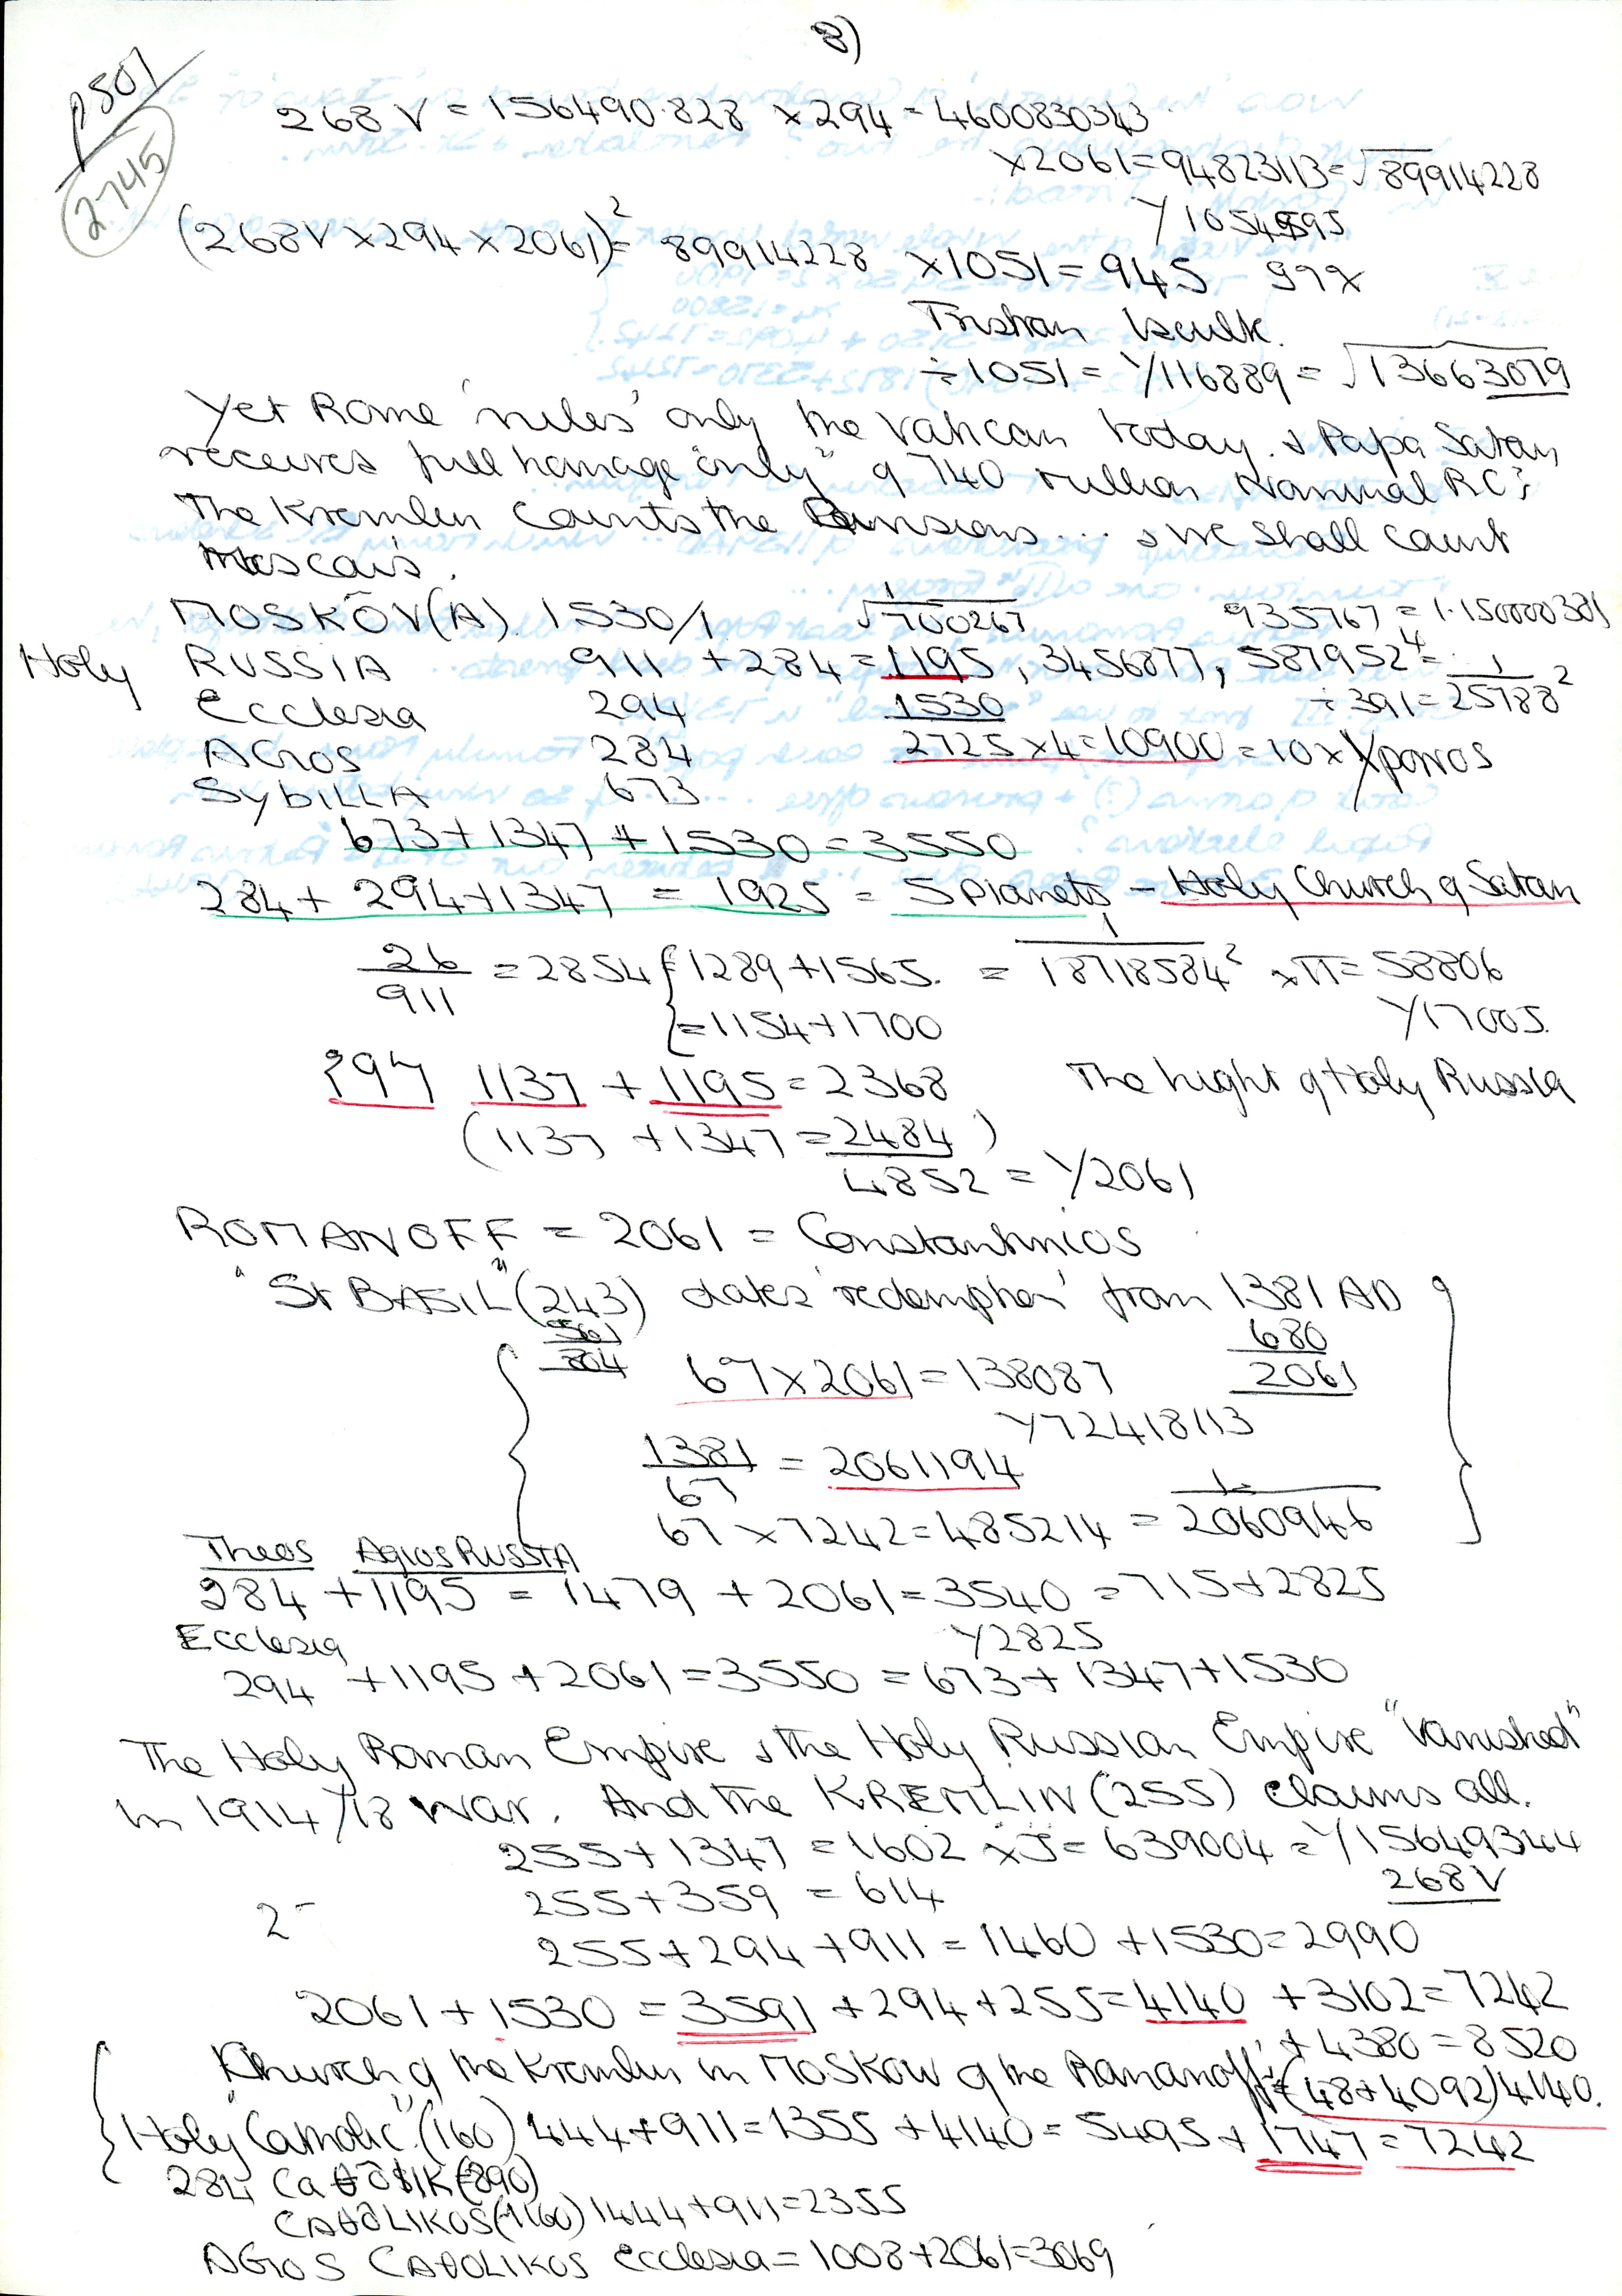 8)
p501
2745
268V = 156490.828 × 294 = 4600830343
×2061 = 94823113 = √89914228
Y10549595
(268V × 294 × 2061)² = 89914228 × 1051 = 945 997
Tristran Iseult.
÷ 1051 = Y116889 = √13663079
Yet Rome 'rules' only the Vatican today. & Papa Satan
receives full homage "only" of 740 million Nominal RCs
The Kremlin counts the ... & we shall count
MOSKŌV(A). 1530/1 1/√700267 935767 = 1.150000381
Holy RUSSIA 911 + 284 = 1195, 3456877, 587952⁴ = 1
Ecclesia 294 1530 ÷ 391 = 25788²
AGIOS 284 2725 × 4 = 10900 = 10 × Xpovos
SYBILLA 673
673 + 1347 + 1530 = 3550
284 + 294 + 1347 = 1925 = 5 Planets - Holy Church of Satan
26/911 = 2854 { 1289 + 1565. = 1/18718584² × π = 58806
= 1154 + 1700 Y17005.
1137 + 1195 = 2368 The hight of Holy Russia
(1137 + 1347 = 2484)
4852 = Y2061
ROMANOFF = 2061 = Constantinios
"St BASIL" (243) dates 'redemption' from 1381 AD
561 680
804 67 × 2061 = 138087 2061
Y72418113
1381/67 = 2061194
67 × 7242 = 485214 = 1/2060946
Theos Agios RUSSIA
284 + 1195 = 1479 + 2061 = 3540 = 715 + 2825
Ecclesia Y2825
294 + 1195 + 2061 = 3550 = 673 + 1347 + 1530
The Holy Roman Empire & the Holy Russian Empire "vanished"
in 1914/18 war. And the KREMLIN (255) claims all.
255 + 1347 = 1602 × J = 639004 = Y15649344
255 + 359 = 614 268V
2-
255 + 294 + 911 = 1460 + 1530 = 2990
2061 + 1530 = 3591 + 294 + 255 = 4140 + 3102 = 7242
+ 4380 = 8520
Church of the Kremlin in MOSKOW of the Romanoffs = (48 + 4092) 4140.
Holy "Catholic" (160) 444 + 911 = 1355 + 4140 = 5495 + 1747 = 7242
284 (890)
CAθOLIKOS (1160) 1444 + 911 = 2355
AGIOS CAθOLIKOS Ecclesia = 1008 + 2061 = 3069